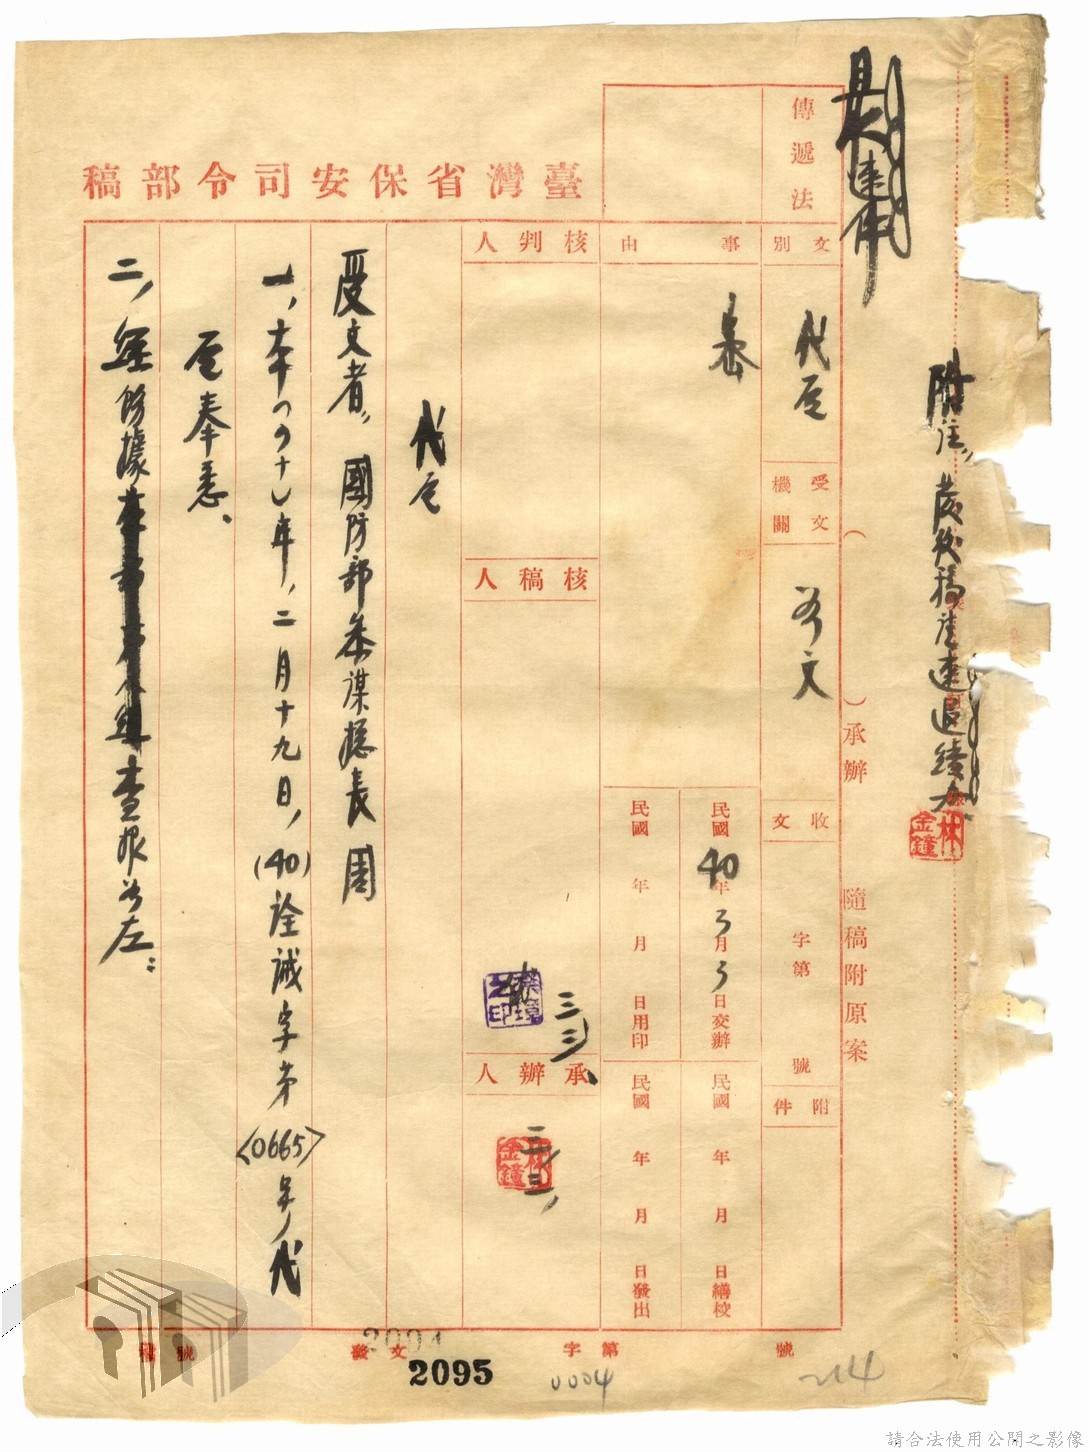 臺灣省保安司令部稿
傳遞法
最速件
附註，發後稿請速退續
林金鐘
文別
代電
受文機關
如文
收文
字第
號
附件
（
）承辦
隨稿附原案
事由
民國40年3月3日交辦
民國 年 月 日繕校
民國 年 月 日用印
民國 年 月 日發出
核判人
核稿人
三三
承辦人
林金鐘
三三，
代電
受文者，國防部參謀總長周
一，本（四十）年，二月十九日，（40）詮誠字第〈0665〉號，代
電奉悉、
二，經飭據
查報如左：
發文
字第
號
稿號
2094
2095
0004
214
請合法使用公開之影像